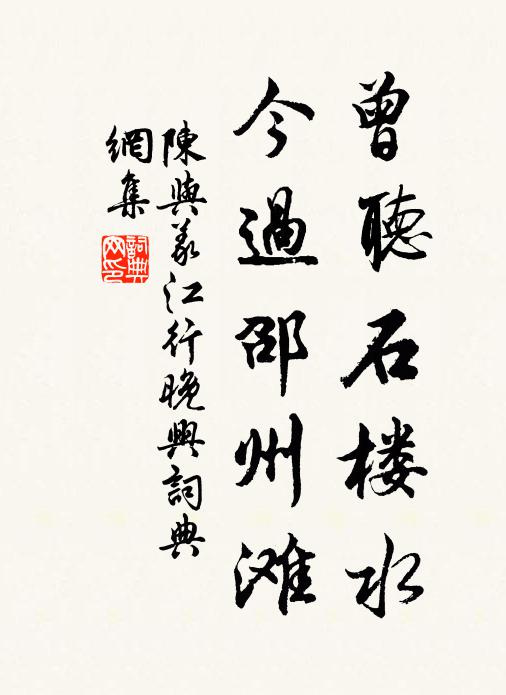 曾聽石楼水
今過邵州滩
陳與義江行晚興詞典
網集
詞典
网印